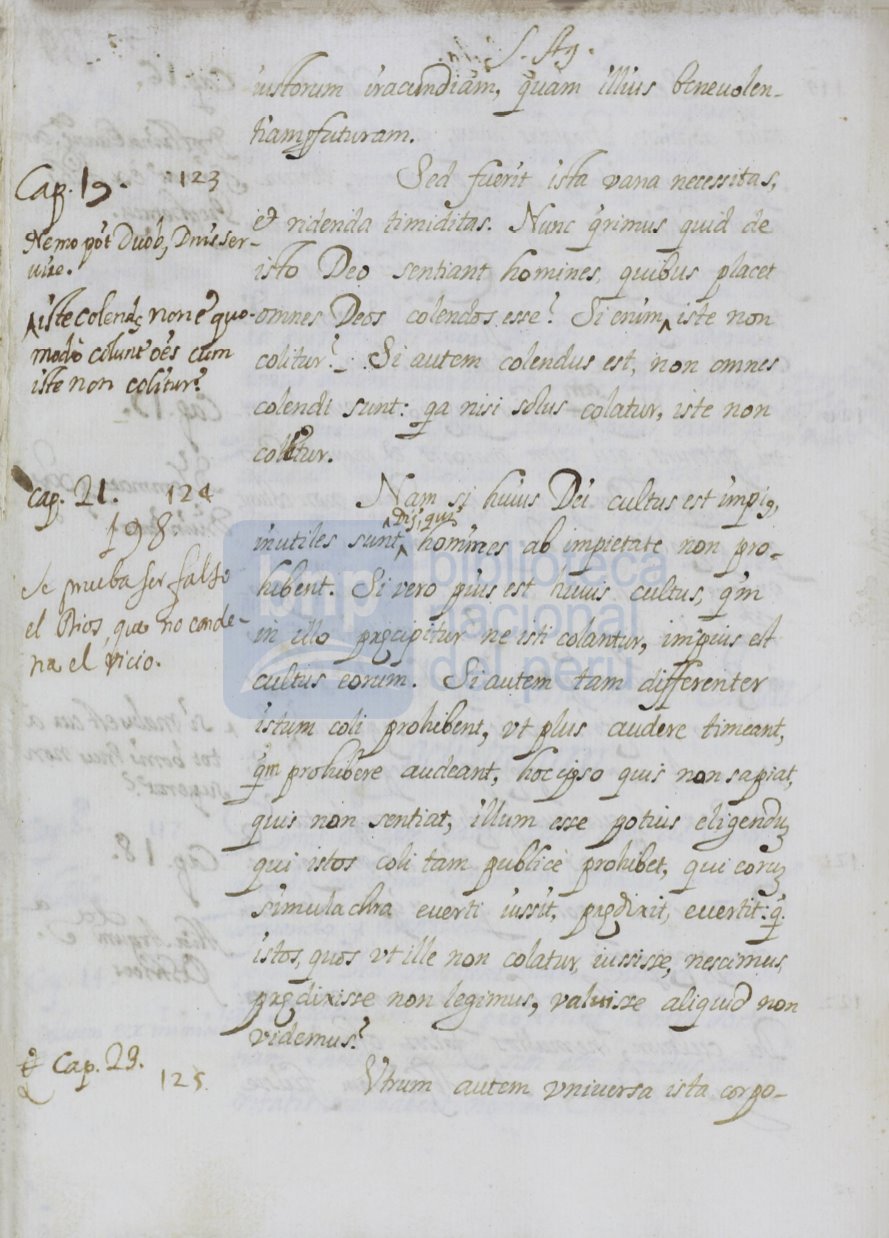 S. Aug.
iustorum iracundiam, quam illius beneuolen-
tiam futuram.
Cap. 19. 123
Sed fuerit ista vana necessitas,
et ridenda timiditas. Nunc qrimus quid de
Nemo pot Duob, Dnis ser-
uire.
isto Deo sentiant homines, quibus placet
omnes Deos colendos esse? Si enim ‸ iste non
‸ iste colendꝰ non e quo-
modo colunt oēs cum
iste non colitur?
colitur? Si autem colendus est, non omnes
colendi sunt: qa nisi solus colatur, iste non
colitur.
Cap. 21. 124
198
Se prueba ser falso
el Dios, que no conde-
na el vicio.
Nam si huius Dei cultus est impiꝰ,
Dij, qui
inutiles sunt ‸ homines ab impietate non pro-
hibent. Si vero pius est huius cultus, qm
in illo pręcipitur ne isti colantur, impius est
cultus eorum. Si autem tam differenter
istum coli prohibent, vt plus audere timeant,
qm prohibere audeant, hoc ipso quis non sapiat,
quis non sentiat, illum esse potius eligendū
qui istos coli tam publicè prohibet, qui eorū
simulachra euerti iussit, prędixit, euertit: q̃
istos, quos vt ille non colatur, iussisse, nescimus,
prędixisse non legimus, valuisse aliquid non
videmus?
Cap. 23. 125
Vtrum autem vniuersa ista corpo-
bnp biblioteca
nacional
del perú